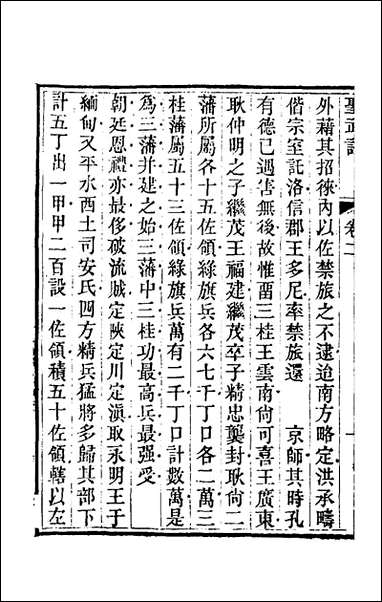 聖武記　卷二　一
外藉其招徠內以佐禁旅之不逮迨南方略定洪承疇
偕宗室託洛信郡王多尼率禁旅還　京師其時孔
有德已遇害無後故惟畱三桂王雲南尙可喜王廣東
耿仲明之子繼茂王福建繼茂卒子精忠襲封耿尙二
藩所屬各十五佐領綠旗兵各六七千丁口各二萬三
桂藩屬五十三佐領綠旗兵萬有二千丁口計數萬是
爲三藩并建之始三藩中三桂功最高兵最强受
朝廷恩禮亦最侈破流賊定陝定川定滇取永明王于
緬甸又平水西土司安氏四方精兵猛將多歸其部下
計五丁出一甲甲二百設一佐領積五十佐領轄以左